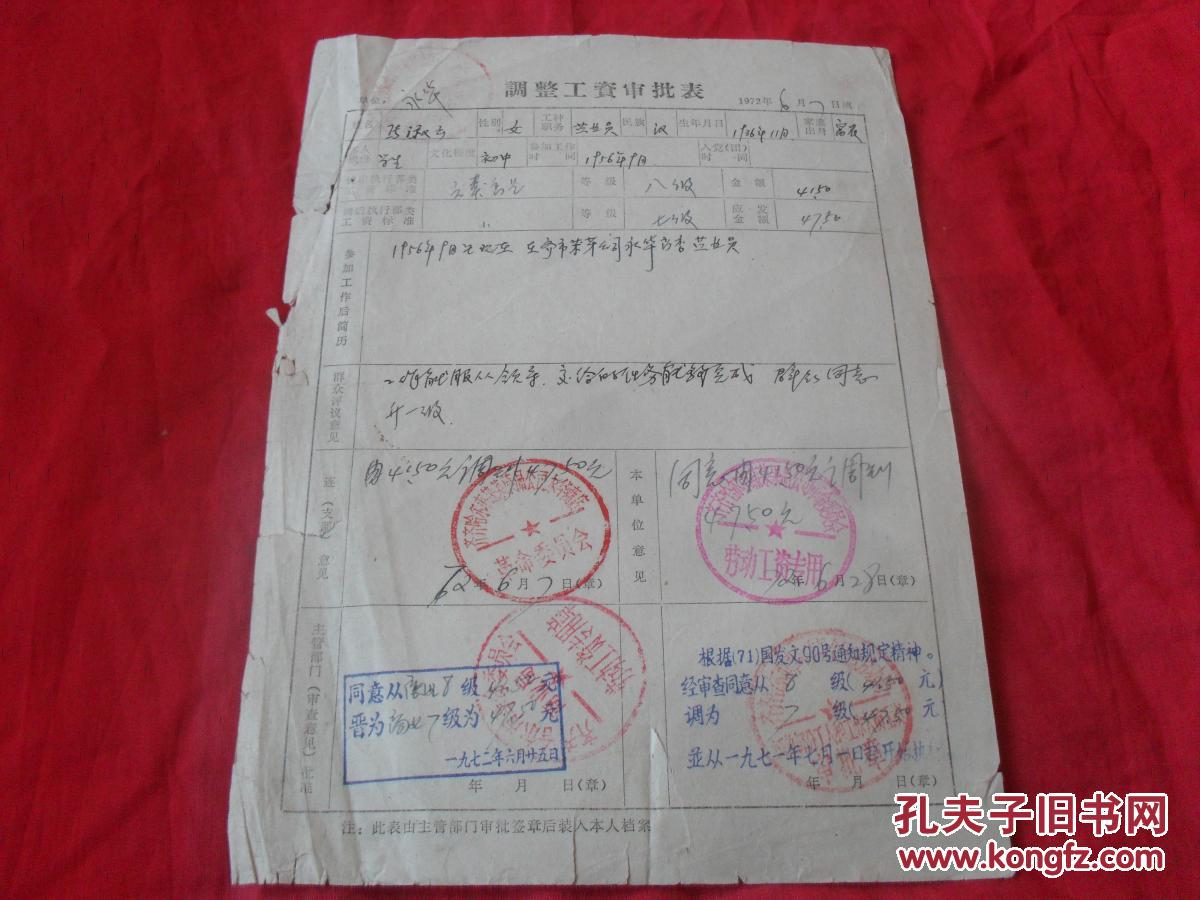 調整工資审批表
单位: 永华 1972年6月7日填
姓名 性别 女 工种职务 营业员 民族 汉 生年月日 1936年11月 家庭出身 富农
本人成份 学生 文化程度 初中 参加工作时间 1956年9月 入党(团)时间
等级 八级 金额 41.50
工资标准 〃 等级 七级 应发金额 47.50
参加工作后简历
1956年9月 永华 营业员
群众评议意见
工作能服从领导. 交给的任务能够完成 群众同意
升一级.
连(支部)意见
由41.50元调 47.50元
革命委员会
72年6月7日(章)
本单位意见
同意由41.50元调到
47.50元
劳动工资专用
72年6月28日(章)
主管部门(审查意见)批准
同意从商业8级41.50元
晋为商业7级为47.50元
一九七二年六月廿五日
年 月 日(章)
根据(71)国发文90号通知规定精神。
经审查同意从 8 级(41.50元)
调为 7 级(47.50元)
並从一九七一年七月一日起开始
年 月 日(章)
注:此表由主管部门审批签章后装入本人档案
孔夫子旧书网
www.kongfz.com